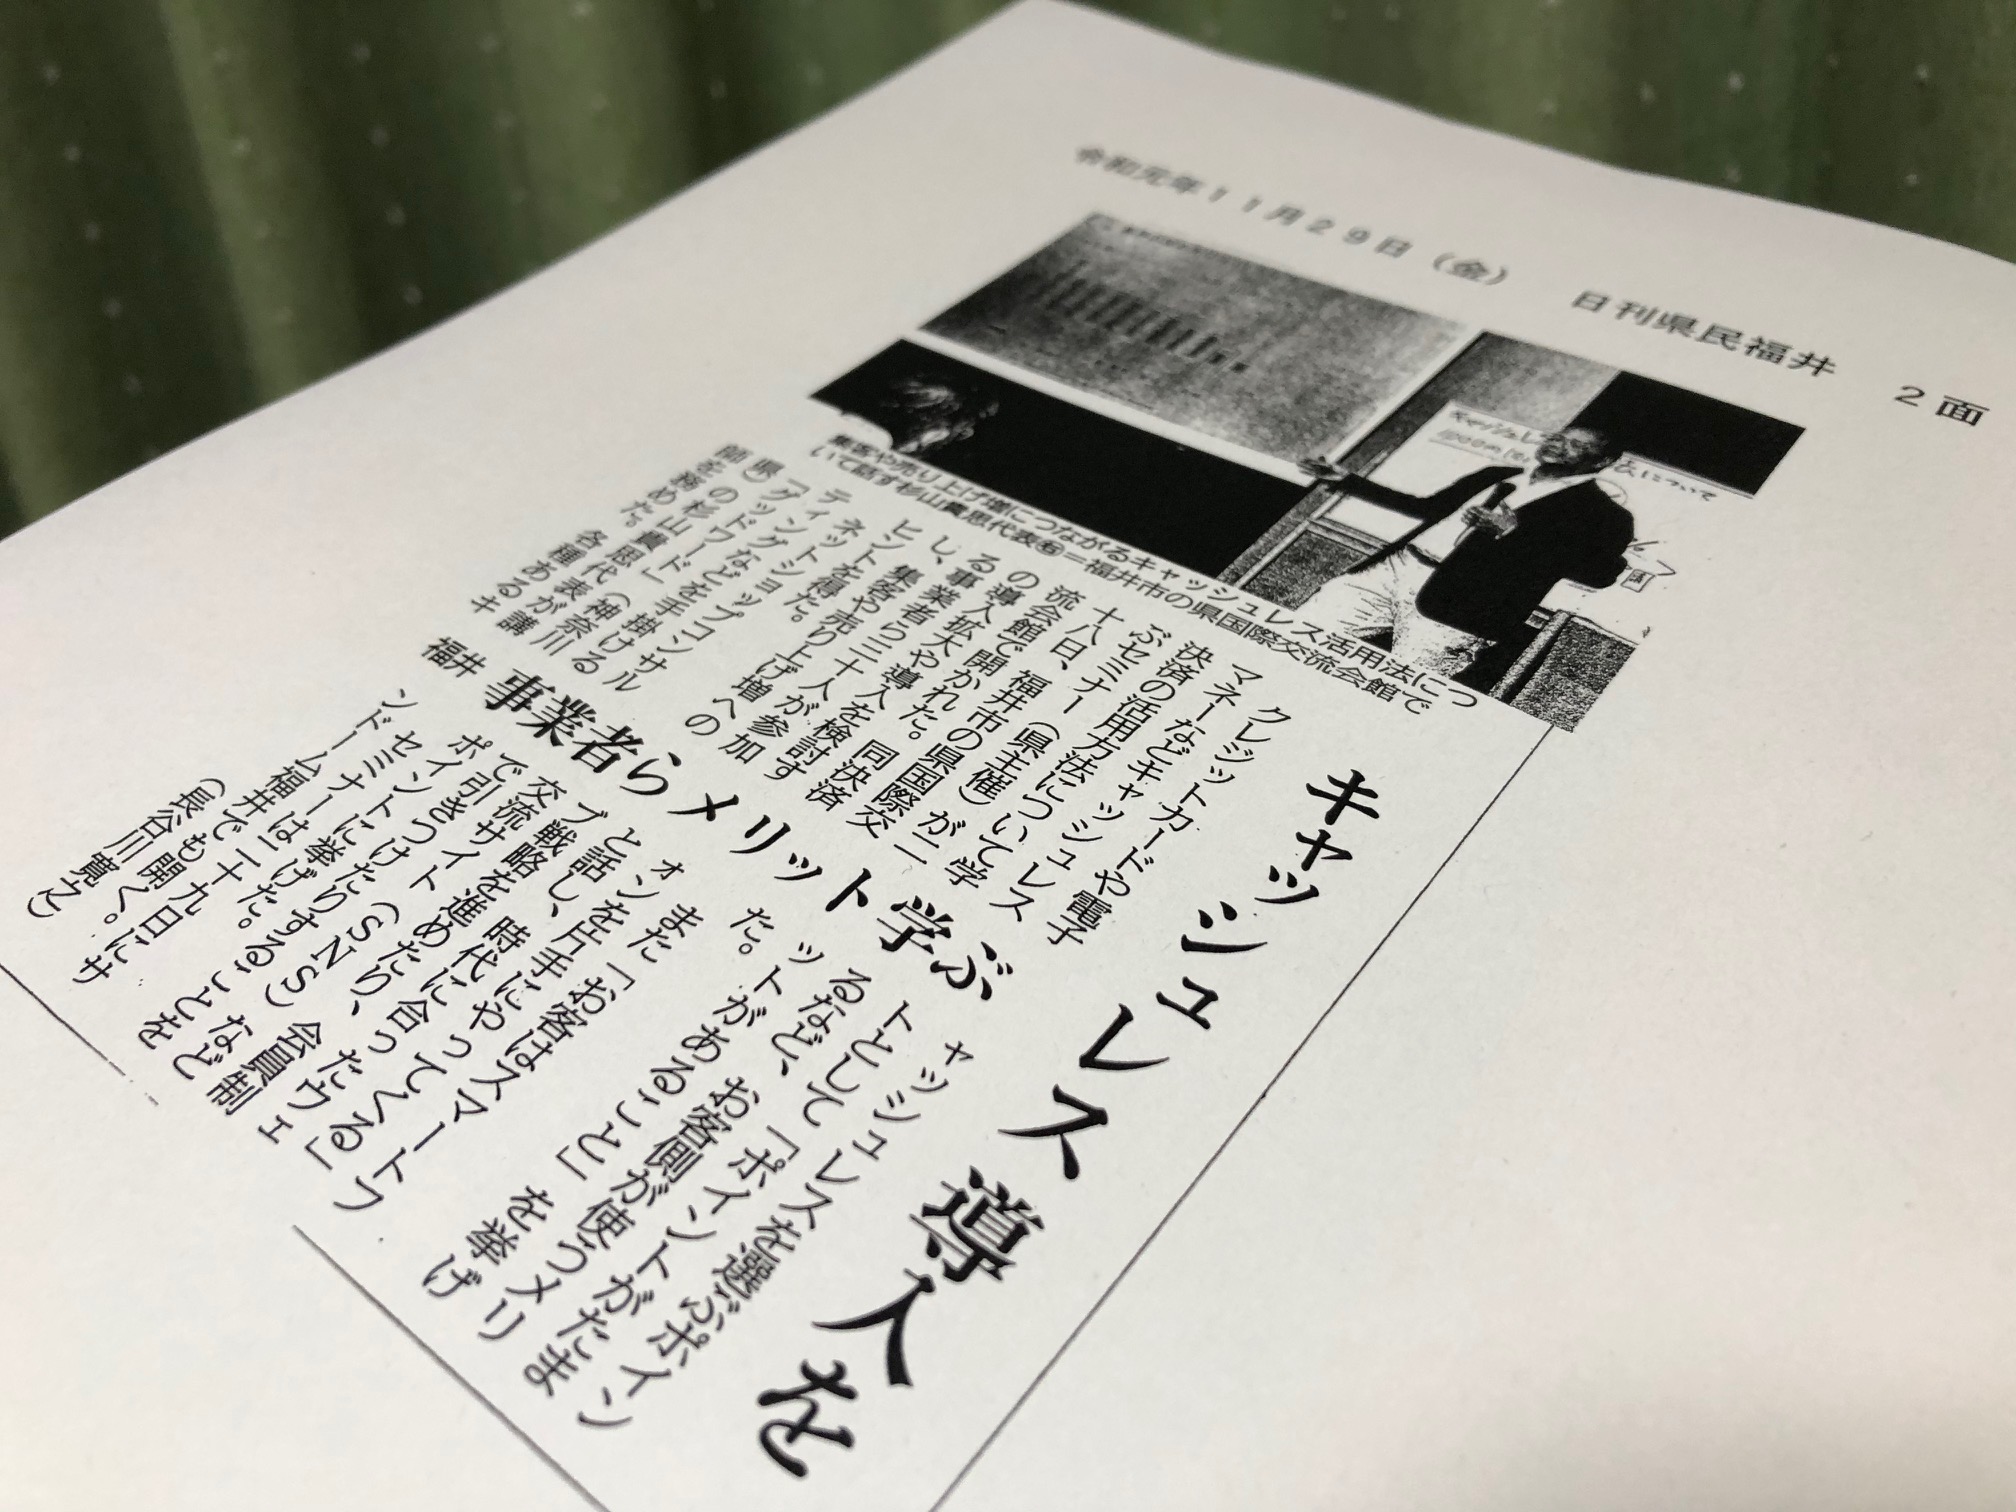 令和元年11月29日（金）　日刊県民福井　2面
キャッシュレ
について
集客や売り上げ増につながるキャッシュレス活用法につ
いて話す杉山貴思代表㊨＝福井市の県国際交流会館で
キャッシュレス導入を
福井 事業者らメリット学ぶ
クレジットカードや電子
マネーなどキャッシュレス
決済の活用方法について学
ぶセミナー（県主催）が二
十八日、福井市の県国際交
流会館で開かれた。同決済
の導入拡大や導入を検討す
る事業者ら三十人が参加
し、集客や売り上げ増への
ヒントを得た。
ネットショップコンサル
ティングなどを手掛ける
「グッドワード」（神奈川
県）の杉山貴思代表が講
師を務めた。各種あるキ
ャッシュレスを選ぶポイン
トとして「ポイントがたま
るなど、お客側が使うメリ
ットがあること」を挙げ
た。
また「お客はスマートフ
ォンを片手にやってくる」
と話し、時代に合ったウェ
ブ戦略を進めたり、会員制
交流サイト（SNS）など
で引きつけたりすることを
ポイントに挙げた。
セミナーは二十九日にサ
ンドーム福井でも開く。
（長谷川寛之）